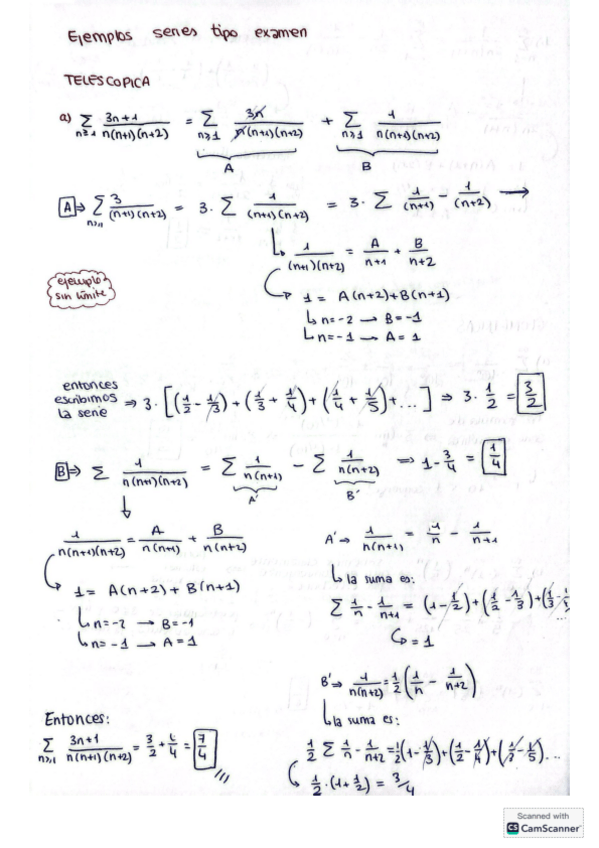 Ejemplos series tipo examen
TELESCOPICA
a) Σ n≥1 (3n+1)/(n(n+1)(n+2)) = Σ n≥1 3n/(n(n+1)(n+2)) + Σ n≥1 1/(n(n+1)(n+2))
A B
A ⇒ Σ n≥1 3/((n+1)(n+2)) = 3· Σ 1/((n+1)(n+2)) = 3· Σ 1/(n+1) - 1/(n+2) →
↳ 1/((n+1)(n+2)) = A/(n+1) + B/(n+2)
ejemplo
sin límite
↳ 1 = A(n+2)+B(n+1)
↳ n=-2 → B=-1
↳ n=-1 → A=1
entonces
escribimos
la serie
⇒ 3·[(1/2 - 1/3)+(1/3 + 1/4)+(1/4 + 1/5)+...] ⇒ 3· 1/2 = 3/2
B ⇒ Σ 1/(n(n+1)(n+2)) = Σ 1/(n(n+1)) - Σ 1/(n(n+2)) ⇒ 1 - 3/4 = 1/4
A' B'
↓
1/(n(n+1)(n+2)) = A/(n(n+1)) + B/(n(n+2))
↳ 1 = A(n+2) + B(n+1)
↳ n=-2 → B=-1
↳ n=-1 → A=1
A' ⇒ 1/(n(n+1)) = 1/n - 1/(n+1)
↳ la suma es:
Σ 1/n - 1/(n+1) = (1 - 1/2)+(1/2 - 1/3)+(1/3 -
↳ = 1
B' ⇒ 1/(n(n+2)) = 1/2 (1/n - 1/(n+2))
↳ la suma es:
1/2 Σ 1/n - 1/(n+2) = 1/2 (1 - 1/3)+(1/2 - 1/4)+(1/3 - 1/5)...
↳ 1/2·(1+1/2) = 3/4
Entonces:
Σ n≥1 (3n+1)/(n(n+1)(n+2)) = 3/2 + 1/4 = 7/4
Scanned with
CS CamScanner